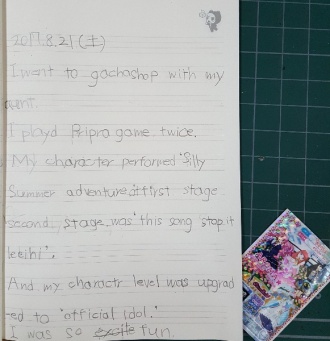 2017.8.21 (土)
I want to gachashop with my
aunt.
I playd Pripra game twice.
My character performed 'Silly
Summer adventure' at first stage
second stage was 'this song stop it
And my charactr level was upgrad
-ed to 'official idol.'
I was so excite fun.